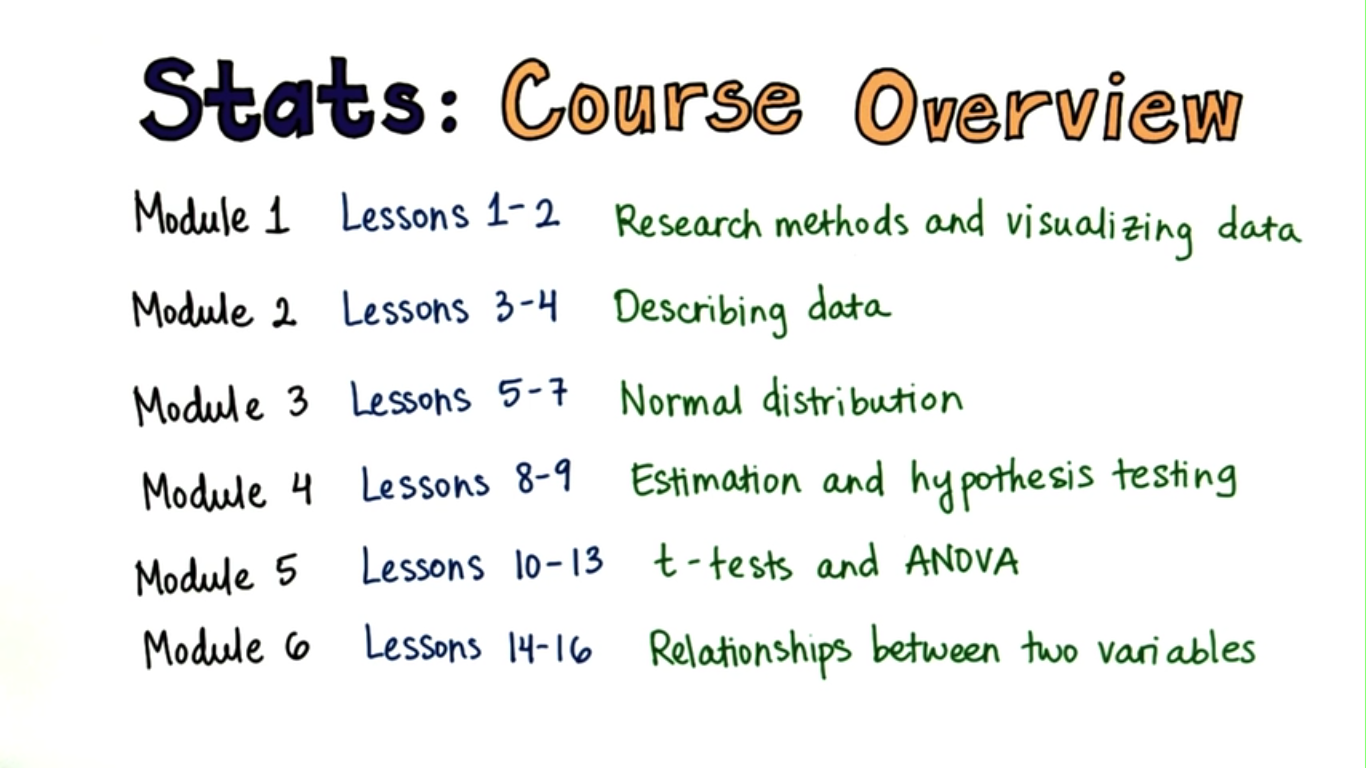 Stats: Course Overview
Module 1 Lessons 1-2 Research methods and visualizing data
Module 2 Lessons 3-4 Describing data
Module 3 Lessons 5-7 Normal distribution
Module 4 Lessons 8-9 Estimation and hypothesis testing
Module 5 Lessons 10-13 t-tests and ANOVA
Module 6 Lessons 14-16 Relationships between two variables